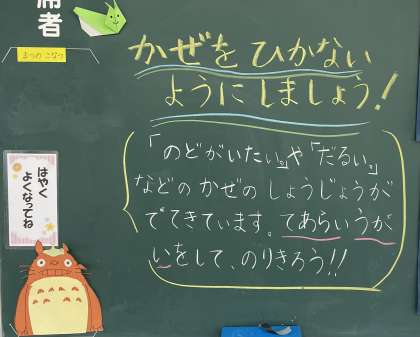 席者
まつの こなつ
はやく
よくなってね
かぜを ひかない
ようにしましょう!
「のどがいたい。」や「だるい。」
などの かぜの しょうじょうが
でてきています。てあらいうが
いをして、のりきろう!!